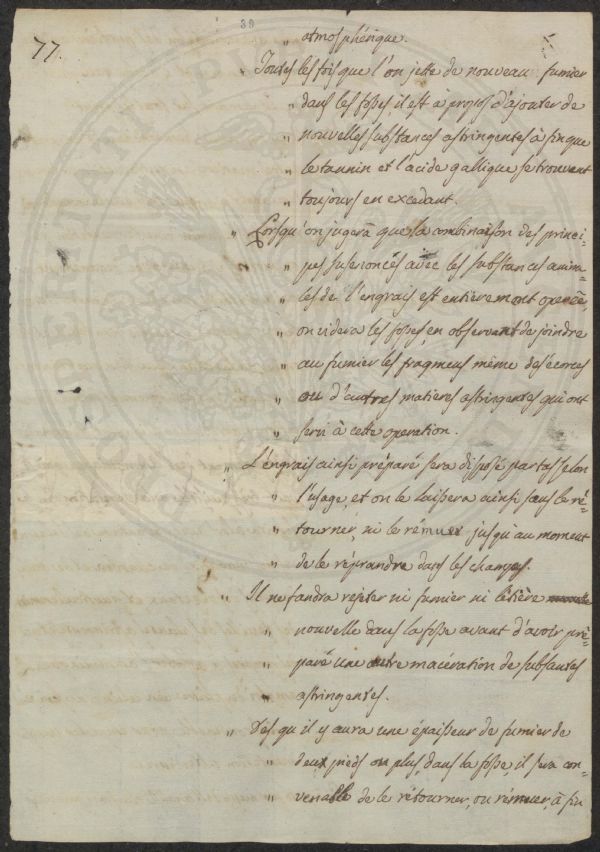 39
77.
" atmosphérique.
" Toutes les fois que l'on jette de nouveau fumier
" dans les fosses, il est à propos d'ajouter de
" nouvelles substances astringentes à fin que
" le tannin et l'acide gallique se trouvent
" toujours en excedant.
" Lorsqu'on jugerà que la combinaison des princi=
" pes susenoncés avec les substances anima=
" les de l'engrais est entièrement operée,
" on videra les fosses, en observant de joindre
" au fumier les fragmens même des écorces
" ou d'autres matières astringentes qui ont
" servi à cette operation.
" L'engrais ainsi préparé sera disposé par tas selon
" l'usage, et on le laissera ainsi sans le ré=
" tourner, ni le rémuer jusqu'au moment
" de le réprandre dans les champs.
" Il ne faudra rejeter ni fumier ni litière
" nouvelle dans la fosse avant d'avoir pré=
" paré une autre macération de substances
" astringentes.
" Des qu'il y aura une épaisseur de fumier de
" deux pieds ou plus, dans la fosse, il sera con=
" venable de le rétourner, ou rémuer, à fin